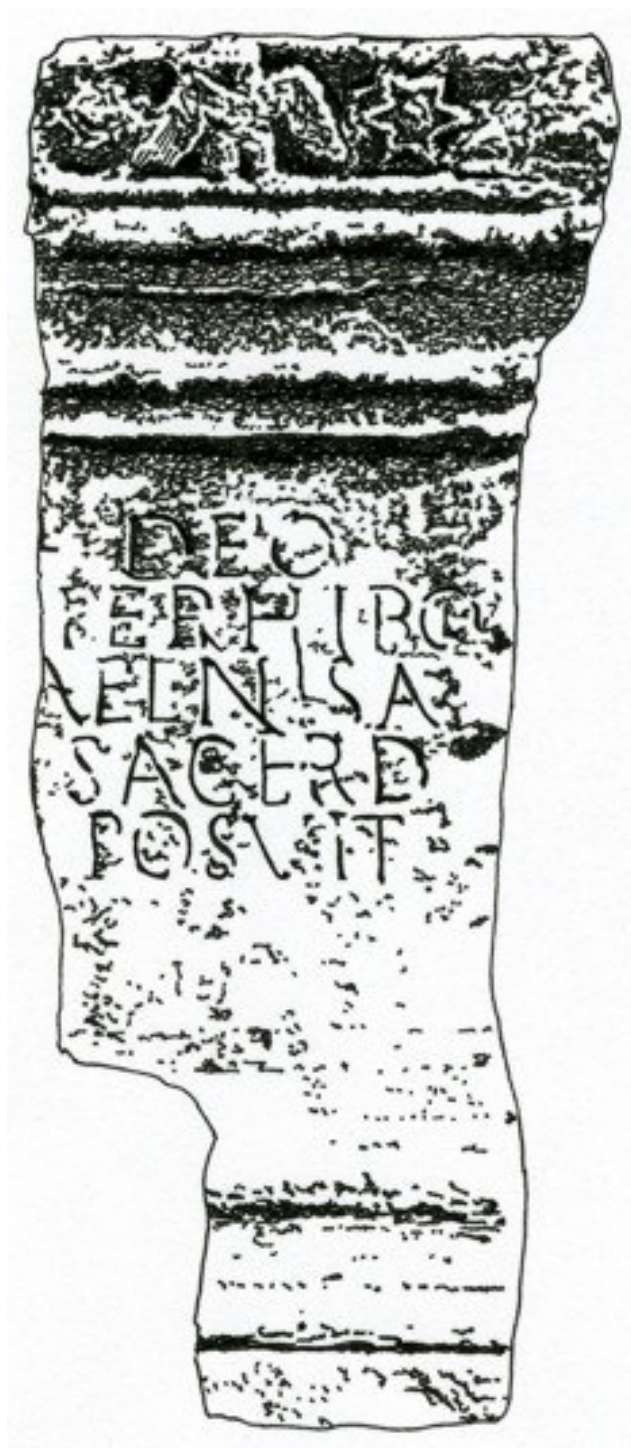 DEO
IERHIBO
AEL NISA
SACERD
POSVIT